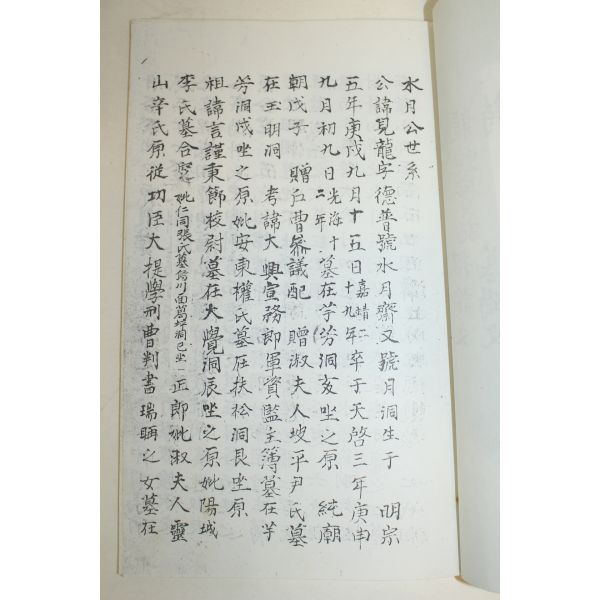 水月公世系
公諱見龍字德普號水月齋又號月洞生于 明宗
五年庚戌九月十五日嘉靖二十九年卒于天啓三年庚申
九月初九日光海十二年墓在芋芳洞亥坐之原 純廟
朝戊子 贈戶曹參議配 贈淑夫人坡平尹氏墓
在玉明洞 考諱大興宣務郎軍資監主簿墓在芋
芳洞戌坐之原妣安東權氏墓在扶松洞艮坐原
祖諱言謹秉節校尉墓在大覺洞辰坐之原妣陽城
李氏墓合窆 妣仁同張氏墓 川面葛坪洞巳坐 正郎妣淑夫人靈
山辛氏原從功臣大提學刑曹判書瑞 之女墓在